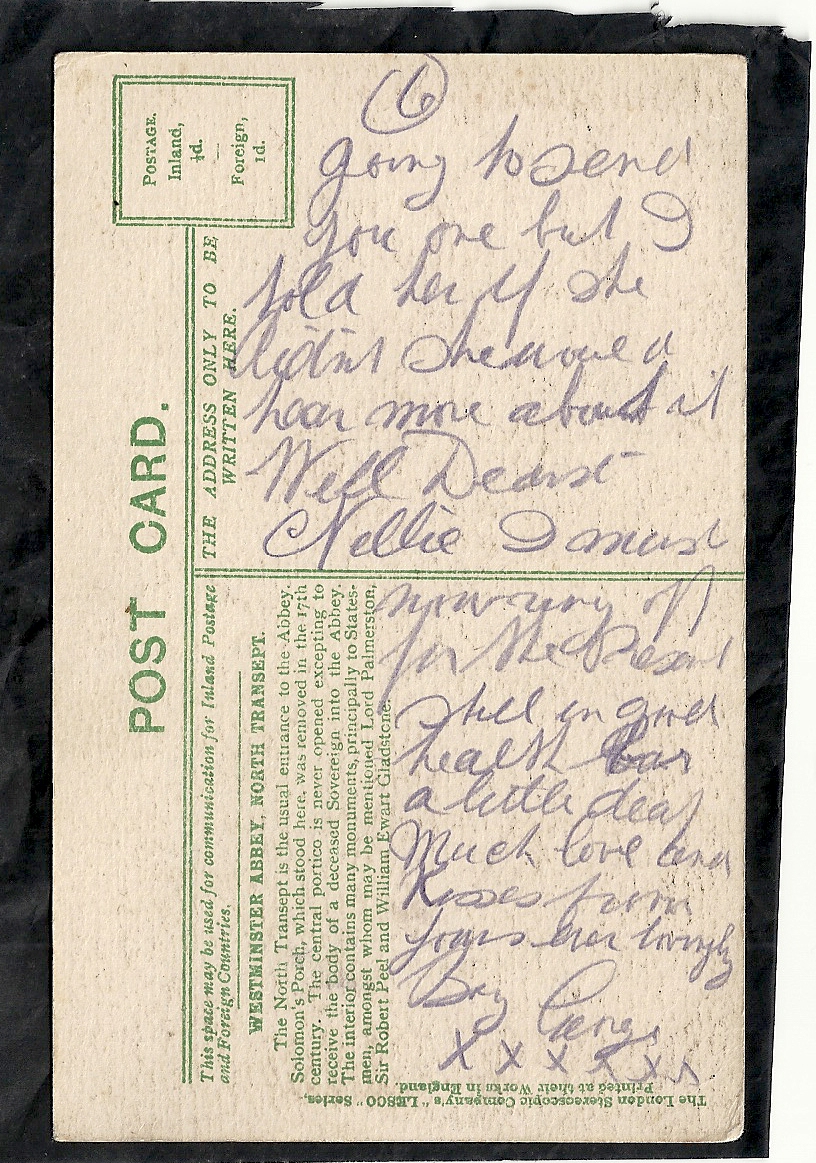 POST CARD.
POSTAGE.
Inland,
½d.
—
Foreign,
1d.
THE ADDRESS ONLY TO BE
WRITTEN HERE.
This space may be used for communication for Inland Postage
and Foreign Countries.
WESTMINSTER ABBEY, NORTH TRANSEPT.
The North Transept is the usual entrance to the Abbey.
Solomon's Porch, which stood here, was removed in the 17th
century. The central portico is never opened excepting to
receive the body of a deceased Sovereign into the Abbey.
The interior contains many monuments, principally to States-
men, amongst whom may be mentioned Lord Palmerston,
Sir Robert Peel and William Ewart Gladstone.
The London Stereoscopic Company's "LESCO" Series,
Printed at their Works in England.
6
going to send
you one but I
told her if she
didnt she would
hear more about it
Well Dearst
Nellie I must
now ring off
for the Present
still in good
health bar
a little deaf
Much love and
Kisses from
yours ever lovingly
Boy
X X X X X X